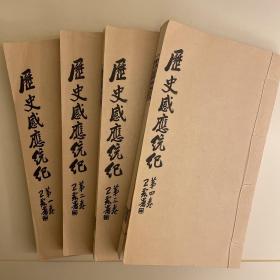 歷史感應統紀
第一卷
歷史感應統紀
第二卷
歷史感應統紀
第三卷
歷史感應統紀
第四卷